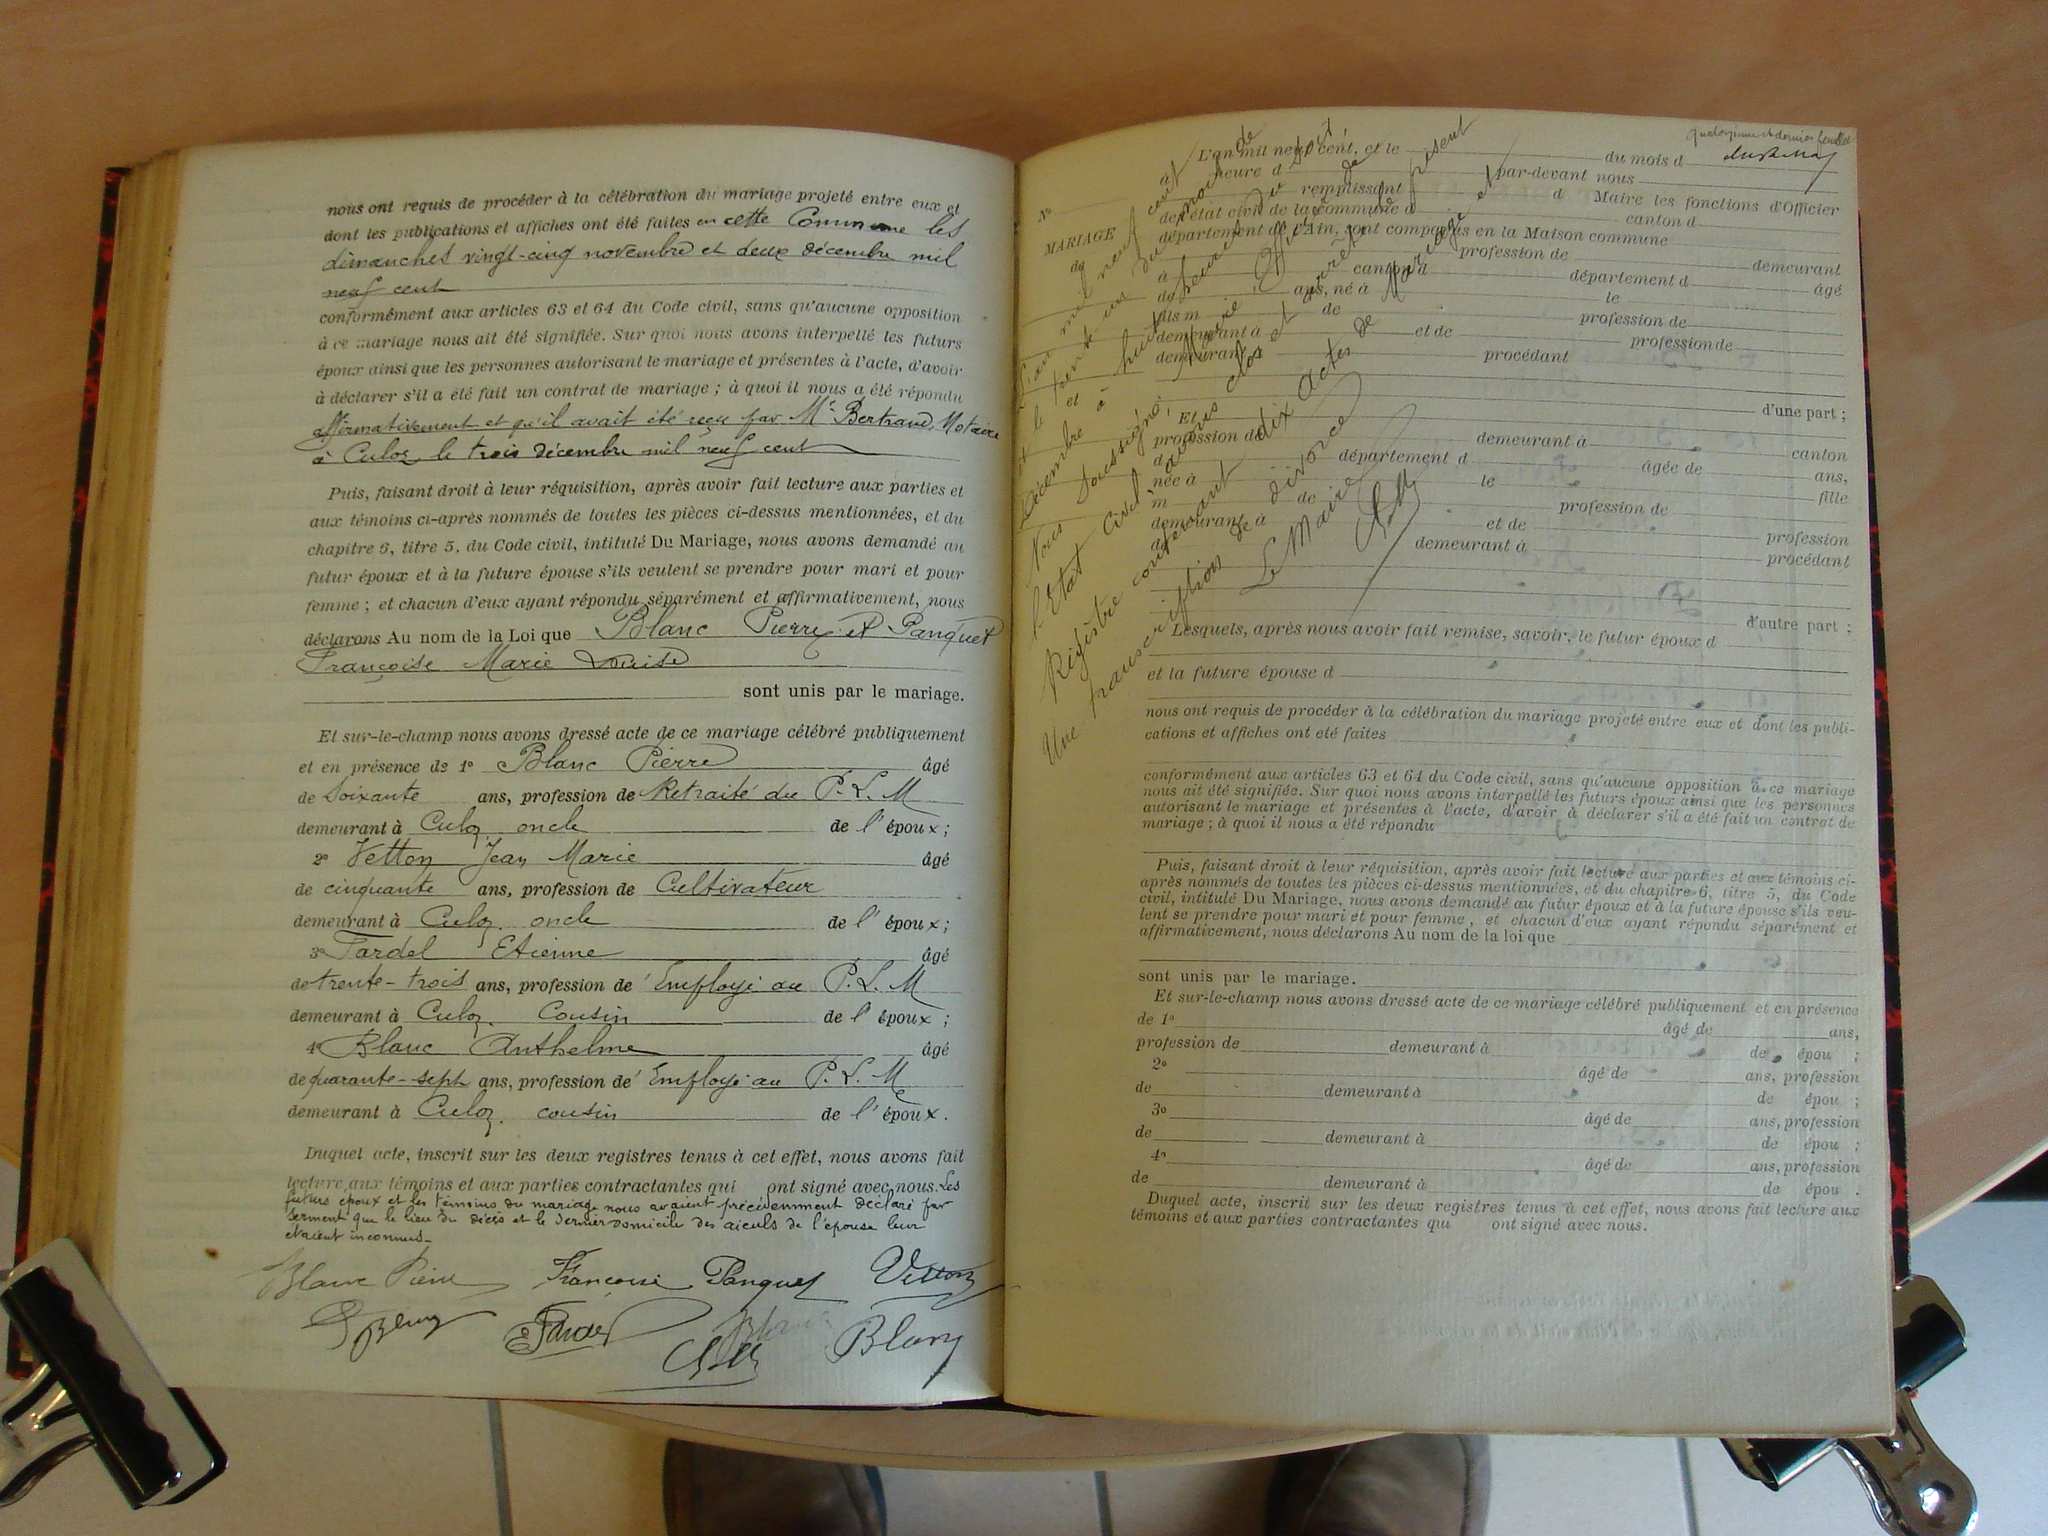 nous ont requis de procéder à la célébration du mariage projeté entre eux et
dont les publications et affiches ont été faites en cette Commune les
dimanches vingt-cinq novembre et deux décembre mil
neuf cent
conformément aux articles 63 et 64 du Code civil, sans qu'aucune opposition
à ce mariage nous ait été signifiée. Sur quoi nous avons interpellé les futurs
époux ainsi que les personnes autorisant le mariage et présentes à l'acte, d'avoir
à déclarer s'il a été fait un contrat de mariage ; à quoi il nous a été répondu
affirmativement et qu'il avait été reçu par Me Bertrand, Notaire
à Culoz, le trois décembre mil neuf cent
Puis, faisant droit à leur réquisition, après avoir fait lecture aux parties et
aux témoins ci-après nommés de toutes les pièces ci-dessus mentionnées, et du
chapitre 6, titre 5, du Code civil, intitulé Du Mariage, nous avons demandé au
futur époux et à la future épouse s'ils veulent se prendre pour mari et pour
femme ; et chacun d'eux ayant répondu séparément et affirmativement, nous
déclarons Au nom de la Loi que Blanc Pierre et Panquet
Françoise Marie Louise
sont unis par le mariage.
Et sur-le-champ nous avons dressé acte de ce mariage célébré publiquement
et en présence de 1° Blanc Pierre âgé
de Soixante ans, profession de Retraité du P. L. M
demeurant à Culoz oncle de l'époux ;
2° Vetton Jean Marie âgé
de cinquante ans, profession de Cultivateur
demeurant à Culoz. oncle de l'époux ;
3° Tardel Etienne âgé
de trente-trois ans, profession d'Employé au P. L. M
demeurant à Culoz. Cousin de l'époux ;
4° Blanc Anthelme âgé
de quarante-sept ans, profession d'Employé au P. L. M
demeurant à Culoz. cousin de l'époux.
Duquel acte, inscrit sur les deux registres tenus à cet effet, nous avons fait
lecture aux témoins et aux parties contractantes qui ont signé avec nous. Les
futurs époux et les témoins du mariage nous avaient précédemment déclaré par
serment que le lieu du décès et le dernier domicile des aïeuls de l'épouse leur
étaient inconnus.
Blanc Pierre Françoise Panquet Vetton
Blanc
Quatorzième et dernier feuillet
L'an mil neuf cent, et le du mois d
à heure d par-devant nous
remplissant d Maire les fonctions d'Officier
de l'état civil de la commune d canton d
département de l'Ain, sont comparus en la Maison commune
No
MARIAGE
de
profession de demeurant
à canton d département d âgé
de ans, né à le
fils m de profession de
demeurant à et de profession de
demeurant procédant
d'une part ;
Et
profession de demeurant à canton
d département d âgée de ans,
née à le fille
m de profession de
demeurant à et de profession
de demeurant à procédant
d'autre part ;
L'an mil neuf cent
et le trente-un du mois de
Décembre et à huit heures du soit,
Nous soussigné, Maire, Officier de
l'Etat Civil avons clos et arrêté le présent
Registre contenant dix actes de Mariage et
Une transcription de divorce
Le Maire
Lesquels, après nous avoir fait remise, savoir, le futur époux d
et la future épouse d
nous ont requis de procéder à la célébration du mariage projeté entre eux et dont les publi-
cations et affiches ont été faites
conformément aux articles 63 et 64 du Code civil, sans qu'aucune opposition à ce mariage
nous ait été signifiée. Sur quoi nous avons interpellé les futurs époux ainsi que les personnes
autorisant le mariage et présentes à l'acte, d'avoir à déclarer s'il a été fait un contrat de
mariage ; à quoi il nous a été répondu
Puis, faisant droit à leur réquisition, après avoir fait lecture aux parties et aux témoins ci-
après nommés de toutes les pièces ci-dessus mentionnées, et du chapitre 6, titre 5, du Code
civil, intitulé Du Mariage, nous avons demandé au futur époux et à la future épouse s'ils veu-
lent se prendre pour mari et pour femme, et chacun d'eux ayant répondu séparément et
affirmativement, nous déclarons Au nom de la loi que
sont unis par le mariage.
Et sur-le-champ nous avons dressé acte de ce mariage célébré publiquement et en présence
de 1° âgé de ans,
profession de demeurant à de épou ;
2° âgé de ans, profession
de demeurant à de épou ;
3° âgé de ans, profession
de demeurant à de épou ;
4° âgé de ans, profession
de demeurant à de épou .
Duquel acte, inscrit sur les deux registres tenus à cet effet, nous avons fait lecture aux
témoins et aux parties contractantes qui ont signé avec nous.